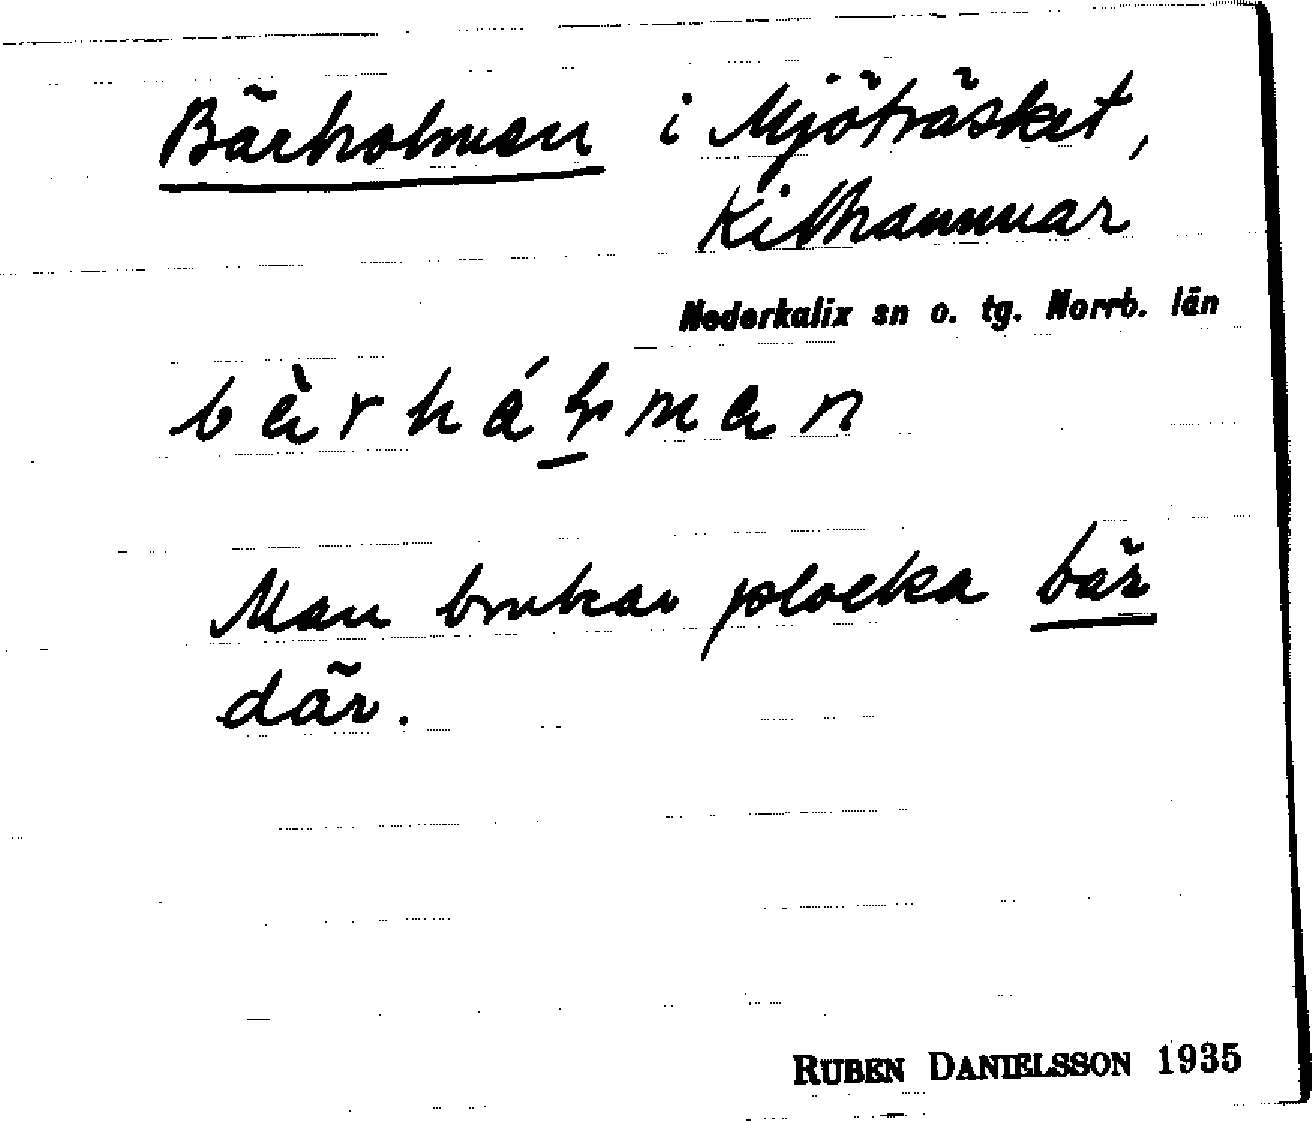 Bärholmen i Mjöträsket,
Kithammar
Nederkalix sn o. tg. Norrb. län
Man brukar plocka bär
där.
RUBEN DANIELSSON 1935